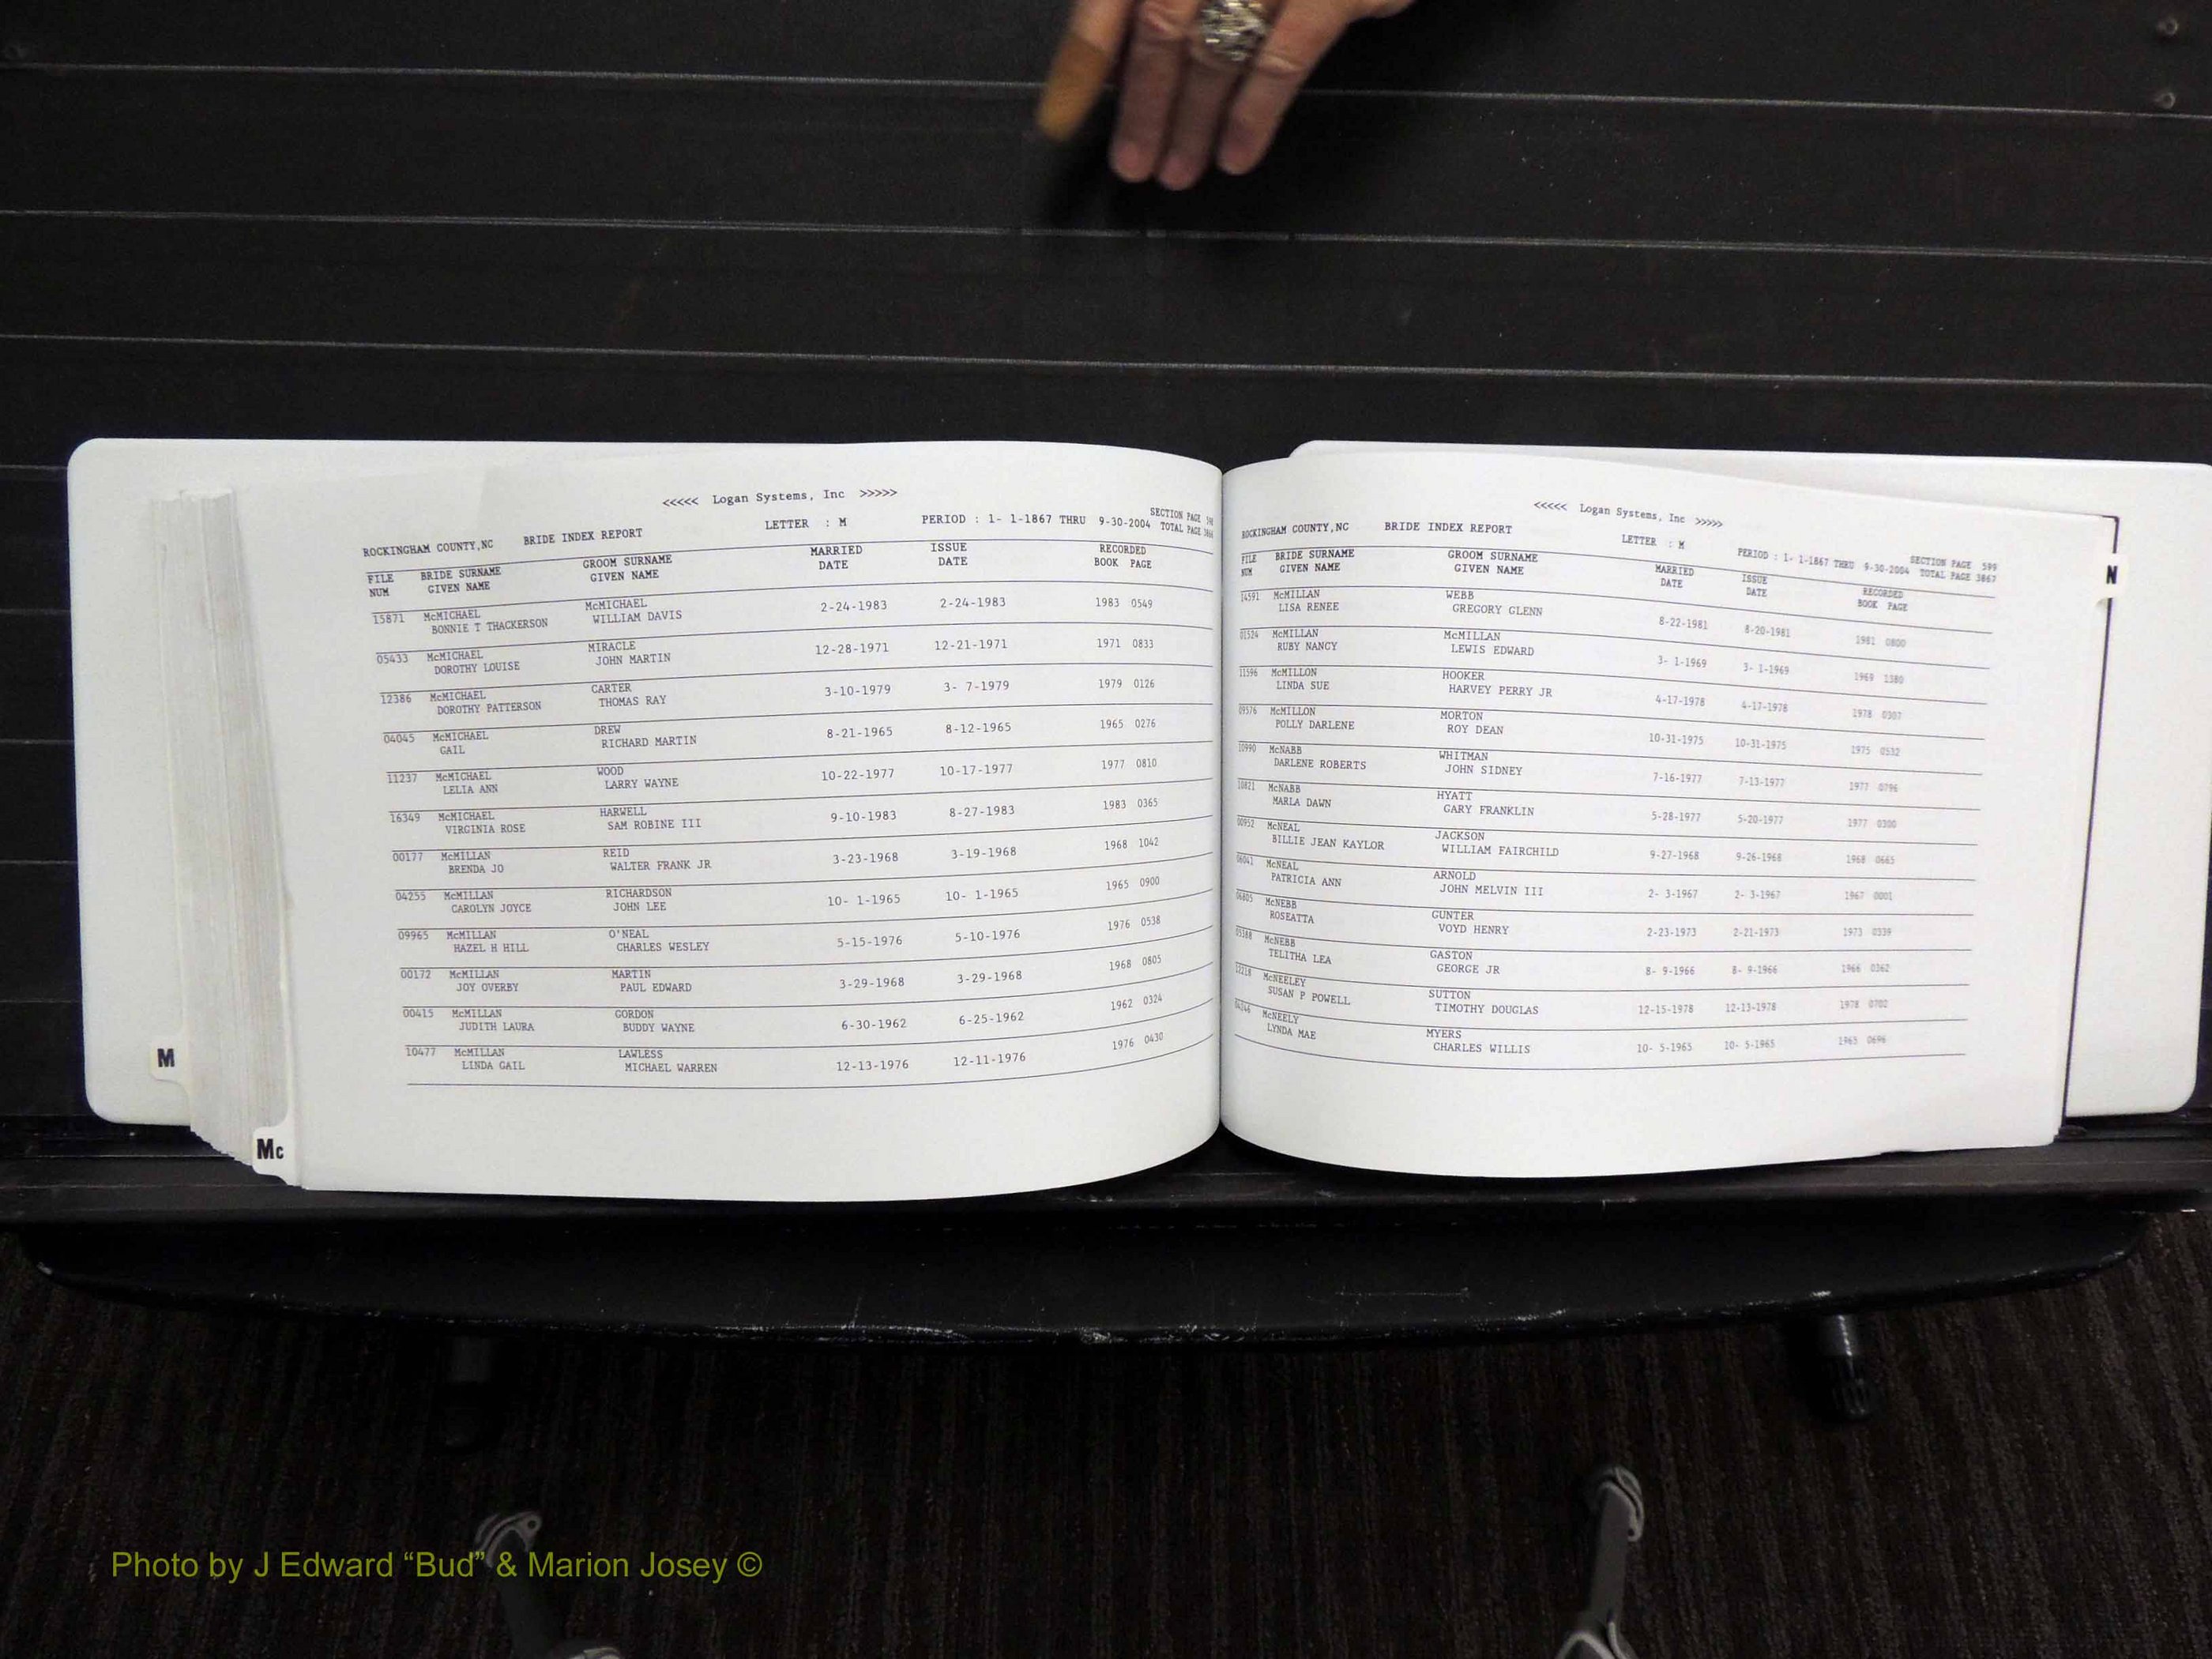 <<<<< Logan Systems, Inc >>>>>
ROCKINGHAM COUNTY,NC BRIDE INDEX REPORT LETTER : M PERIOD : 1- 1-1867 THRU 9-30-2004 SECTION PAGE
TOTAL PAGE
FILE BRIDE SURNAME GROOM SURNAME MARRIED ISSUE RECORDED
NUM GIVEN NAME GIVEN NAME DATE DATE BOOK PAGE
15871 McMICHAEL McMICHAEL 2-24-1983 2-24-1983 1983 0549
BONNIE T THACKERSON WILLIAM DAVIS
05433 McMICHAEL MIRACLE 12-28-1971 12-21-1971 1971 0833
DOROTHY LOUISE JOHN MARTIN
12386 McMICHAEL CARTER 3-10-1979 3- 7-1979 1979 0126
DOROTHY PATTERSON THOMAS RAY
04045 McMICHAEL DREW 8-21-1965 8-12-1965 1965 0276
GAIL RICHARD MARTIN
11237 McMICHAEL WOOD 10-22-1977 10-17-1977 1977 0810
LELIA ANN LARRY WAYNE
16349 McMICHAEL HARWELL 9-10-1983 8-27-1983 1983 0365
VIRGINIA ROSE SAM ROBINE III
00177 McMILLAN REID 3-23-1968 3-19-1968 1968 1042
BRENDA JO WALTER FRANK JR
04255 McMILLAN RICHARDSON 10- 1-1965 10- 1-1965 1965 0900
CAROLYN JOYCE JOHN LEE
09965 McMILLAN O'NEAL 5-15-1976 5-10-1976 1976 0538
HAZEL H HILL CHARLES WESLEY
00172 McMILLAN MARTIN 3-29-1968 3-29-1968 1968 0805
JOY OVERBY PAUL EDWARD
00415 McMILLAN GORDON 6-30-1962 6-25-1962 1962 0324
JUDITH LAURA BUDDY WAYNE
10477 McMILLAN LAWLESS 12-13-1976 12-11-1976 1976 0430
LINDA GAIL MICHAEL WARREN
M
Mc
<<<<< Logan Systems, Inc >>>>>
ROCKINGHAM COUNTY,NC BRIDE INDEX REPORT LETTER : M PERIOD : 1- 1-1867 THRU 9-30-2004 SECTION PAGE 599
TOTAL PAGE 3867
FILE BRIDE SURNAME GROOM SURNAME MARRIED ISSUE RECORDED
NUM GIVEN NAME GIVEN NAME DATE DATE BOOK PAGE
14591 McMILLAN WEBB 8-22-1981 8-20-1981 1981 0800
LISA RENEE GREGORY GLENN
01524 McMILLAN McMILLAN 3- 1-1969 3- 1-1969 1969 1380
RUBY NANCY LEWIS EDWARD
11596 McMILLON HOOKER 4-17-1978 4-17-1978 1978 0307
LINDA SUE HARVEY PERRY JR
09576 McMILLON MORTON 10-31-1975 10-31-1975 1975 0532
POLLY DARLENE ROY DEAN
10990 McNABB WHITMAN 7-16-1977 7-13-1977 1977 0796
DARLENE ROBERTS JOHN SIDNEY
10821 McNABB HYATT 5-28-1977 5-20-1977 1977 0300
MARLA DAWN GARY FRANKLIN
00952 McNEAL JACKSON 9-27-1968 9-26-1968 1968 0665
BILLIE JEAN KAYLOR WILLIAM FAIRCHILD
06041 McNEAL ARNOLD 2- 3-1967 2- 3-1967 1967 0001
PATRICIA ANN JOHN MELVIN III
06805 McNEBB GUNTER 2-23-1973 2-21-1973 1973 0339
ROSEATTA VOYD HENRY
McNEBB GASTON 8- 9-1966 8- 9-1966 1966 0362
TELITHA LEA GEORGE JR
12218 McNEELEY SUTTON 12-15-1978 12-13-1978 1978 0702
SUSAN P POWELL TIMOTHY DOUGLAS
McNEELY MYERS 10- 5-1965 10- 5-1965 1965 0696
LYNDA MAE CHARLES WILLIS
N
Photo by J Edward “Bud” & Marion Josey ©